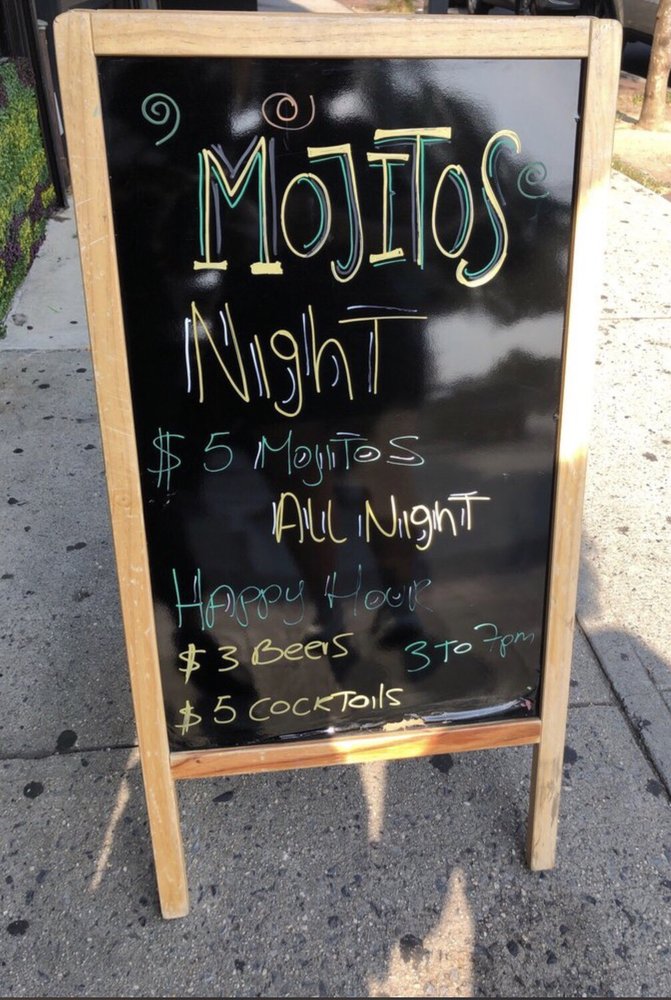 MOJITOS
Night
$5 Mojitos
All Night
Happy Hour
$3 Beers 3 to 7pm
$5 COCKTails